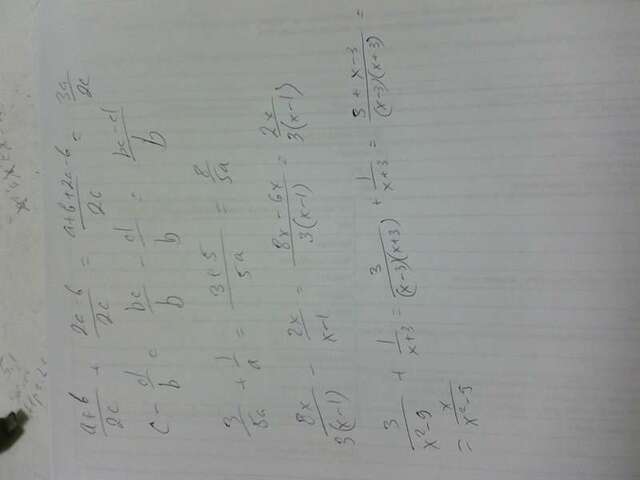 (a+b)/2c + (2a-b)/2c = (a+b+2a-b)/2c = 3a/2c
c - d/b = bc/b - d/b = (bc-d)/b
3/5a + 1/a = (3+5)/5a = 8/5a
8x/3(x-1) - 2x/(x-1) = (8x-6x)/3(x-1) = 2x/3(x-1)
3/(x²-9) + 1/(x+3) = 3/(x-3)(x+3) + 1/(x+3) = (3+x-3)/(x-3)(x+3) =
= x/(x²-9)